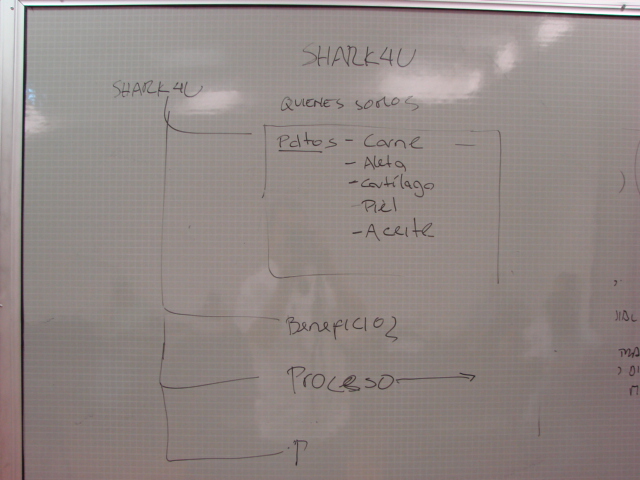 SHARK4U
SHARK4U
QUIENES SOMOS
Pdtos - Carne
- Aleta
- Cartílago
- Piel
- Aceite
Beneficios
Proceso